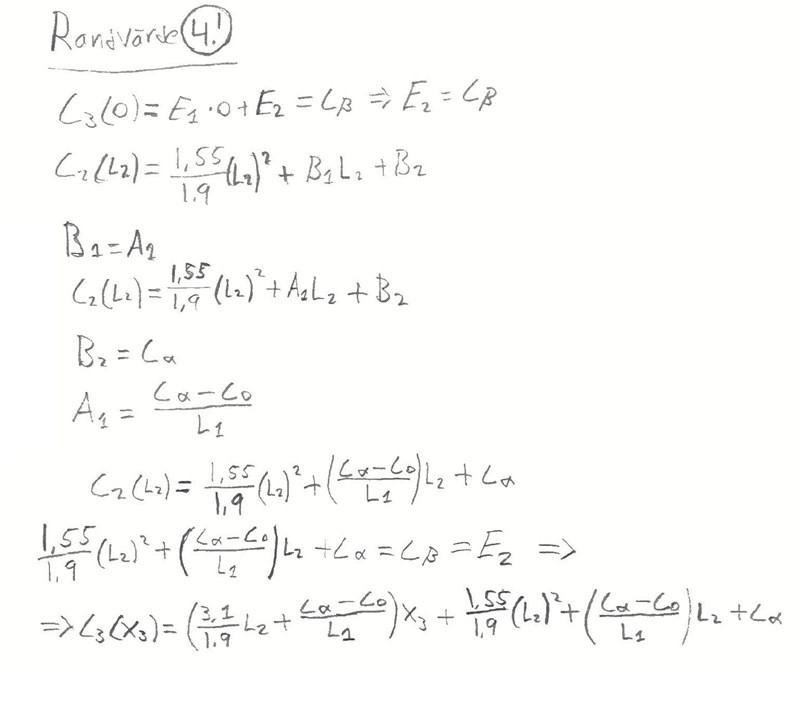 Randvärde 4!
C₃(0) = E₁·0 + E₂ = Cβ ⇒ E₂ = Cβ
C₂(L₂) = 1,55/1,9 (L₂)² + B₁L₂ + B₂
B₁ = A₂
C₂(L₂) = 1,55/1,9 (L₂)² + A₁L₂ + B₂
B₂ = Cα
A₁ = (Cα − C₀)/L₁
C₂(L₂) = 1,55/1,9 (L₂)² + ((Cα − C₀)/L₁)L₂ + Cα
1,55/1,9 (L₂)² + ((Cα − C₀)/L₁)L₂ + Cα = Cβ = E₂ ⇒
⇒ C₃(X₃) = (3,1/1,9 L₂ + (Cα − C₀)/L₁)X₃ + 1,55/1,9 (L₂)² + ((Cα − C₀)/L₁)L₂ + Cα